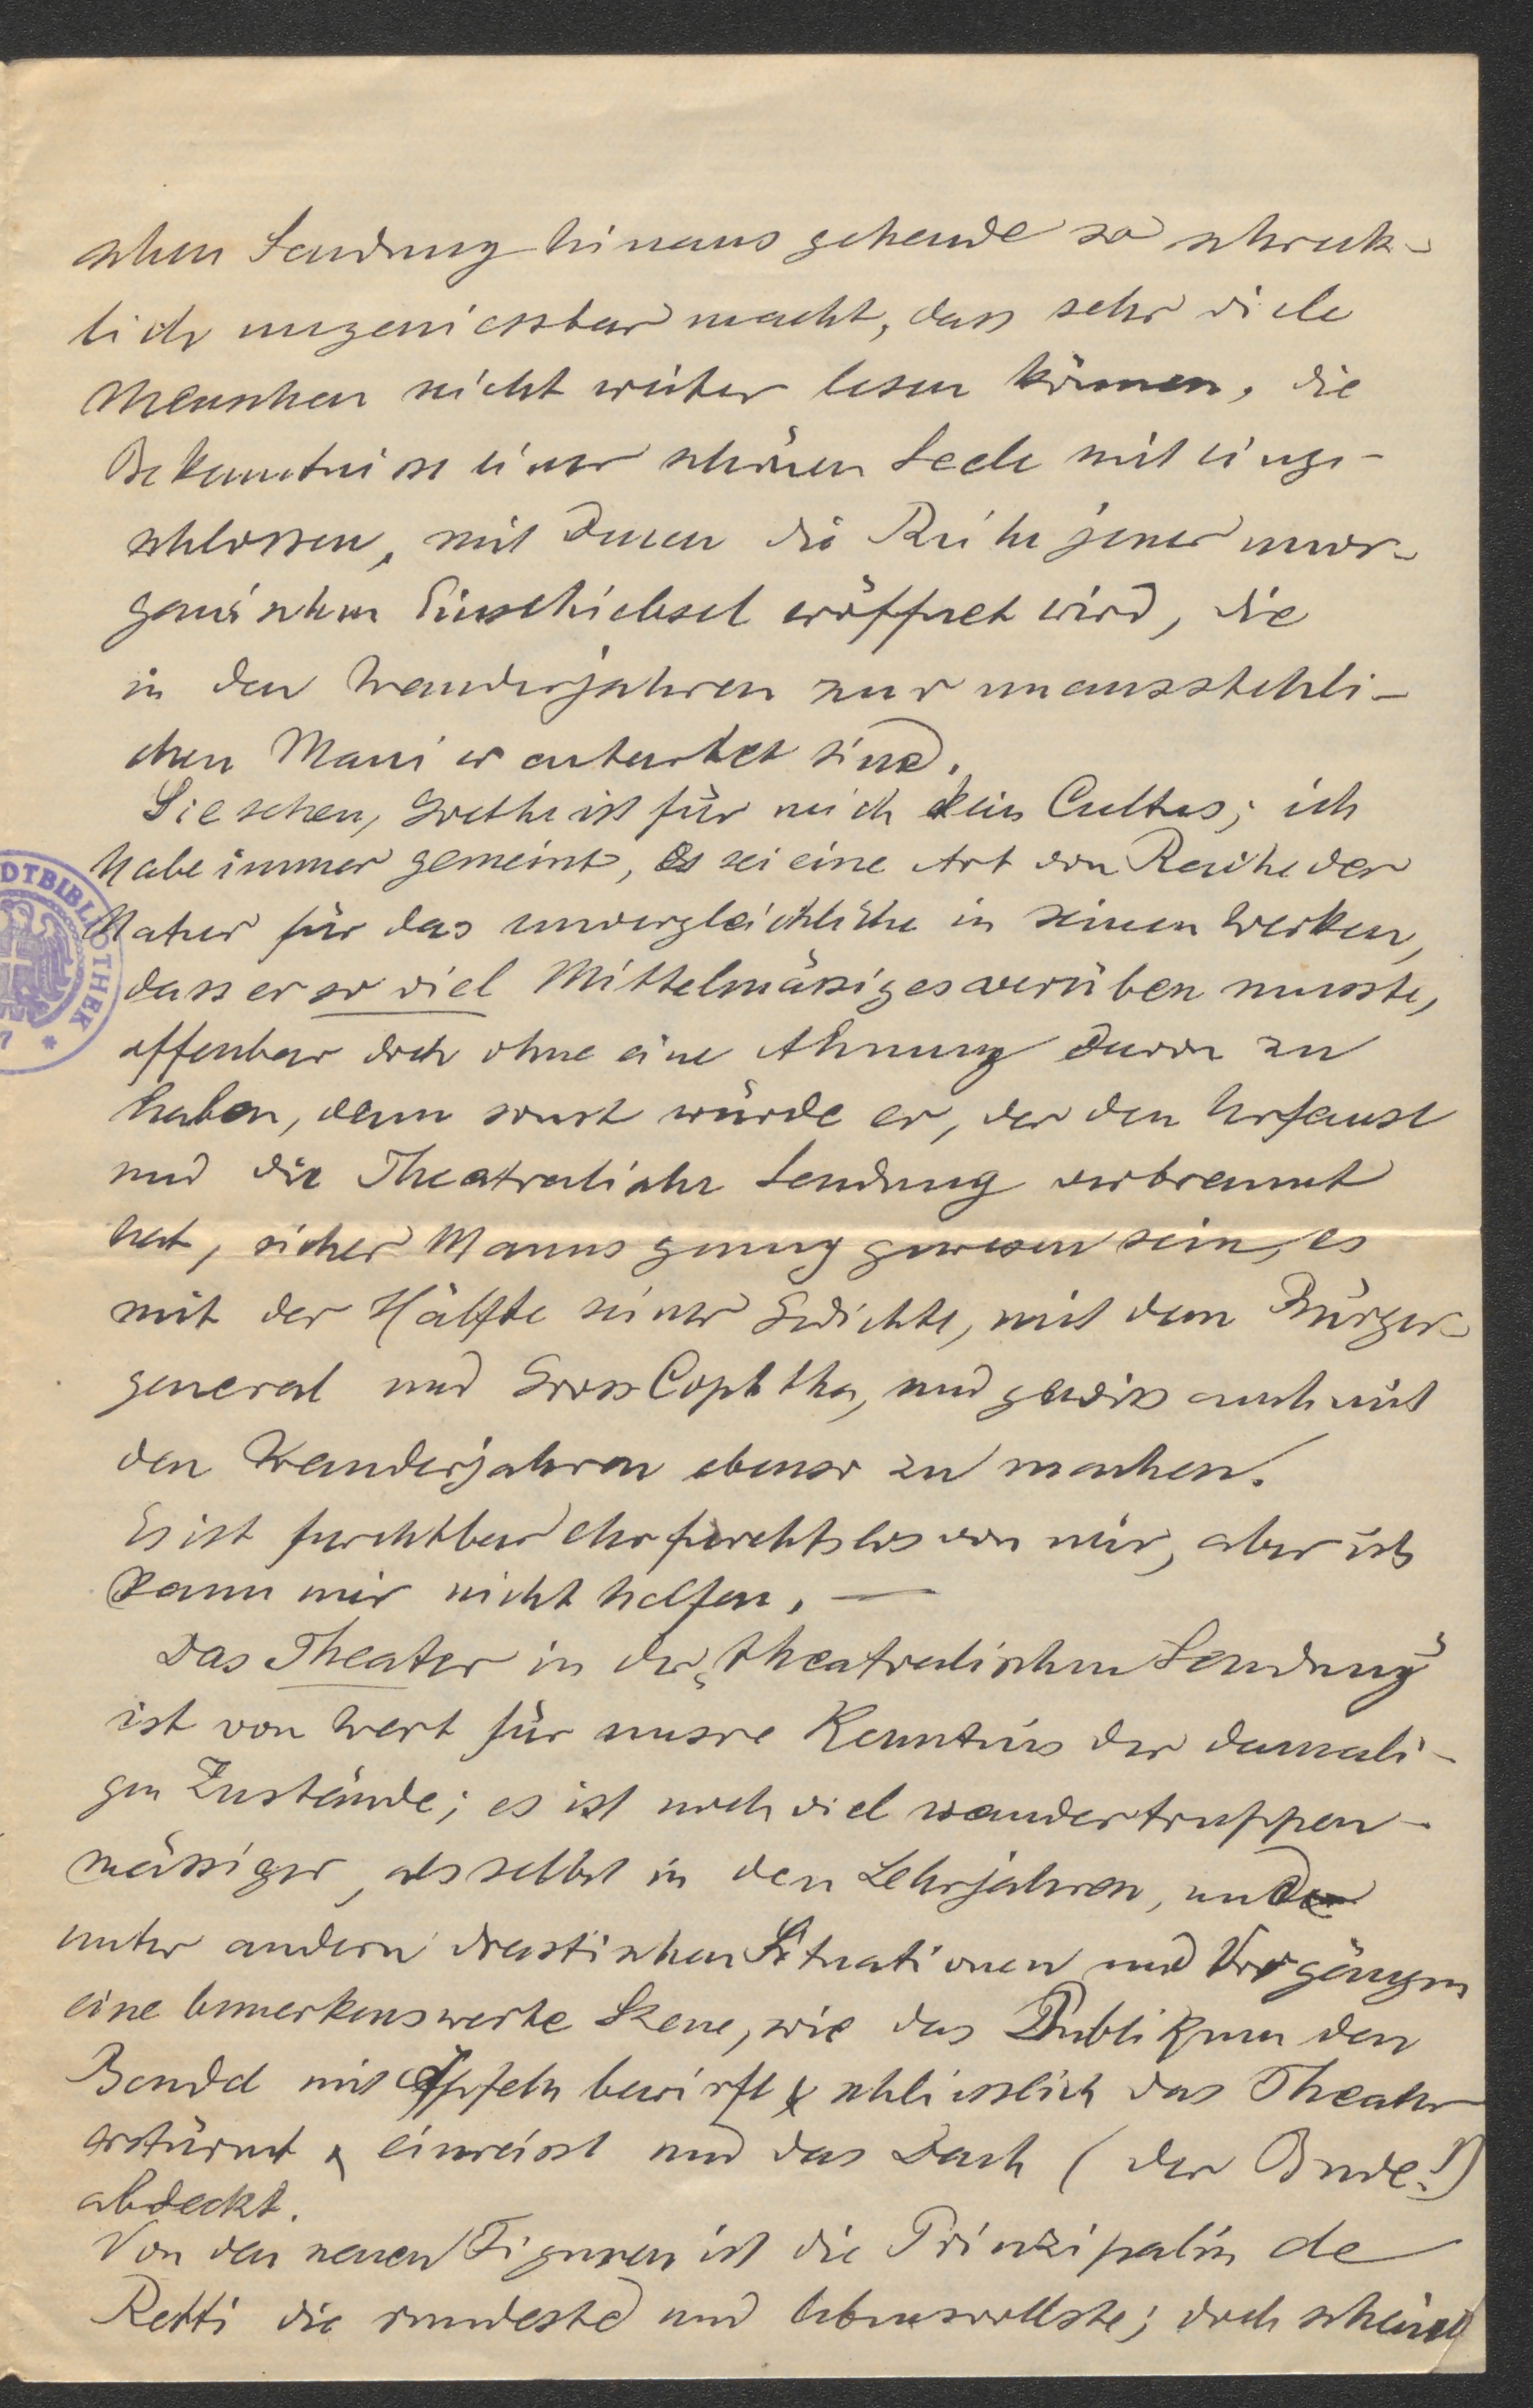 schen Sendung hinausgehende so schreck-
lich ungeniessbar macht, dass sehr viele
Menschen nicht weiter lesen können, die
Bekenntnisse einer schönen Seele mit einge-
schlossen, mit denen die Reihe jener unor-
ganischen Einschiebsel eröffnet wird, die
in den Wanderjahren zur unausstehli-
chen Manier entartet sind.
Sie sehen, Goethe ist für mich kein Cultus; ich
habe immer gemeint, es sei eine Art von Rache der
Natur für das unvergleichliche in seinen Werken,
dass er so viel Mittelmässiges verüben musste,
offenbar doch ohne eine Ahnung davon zu
haben, denn sonst würde er, der den Urfaust
und die Theatralische Sendung verbrannt
hat, sicher Manns genug gewesen sein, es
mit der Hälfte seiner Gedichte, mit dem Bürger-
general und Gross Cophtha, und gewiss auch mit
den Wanderjahren ebenso zu machen.
Es ist furchtbar ehrfurchtslos von mir, aber ich
kann mir nicht helfen. —
Das Theater in der „theatralischen Sendung"
ist von Wert für unsre Kenntnis der damali-
gen Zustände; es ist noch viel wandertruppen-
mässiger, als selbst in den Lehrjahren, und
unter andern drastischen Situationen und Vorgängen
eine bemerkenswerte Szene, wie das Publikum den
Bendel mit Äpfeln bewirft & schliesslich das Theater
erstürmt & einreisst und das Dach (der Bude!)
abdeckt.
Von den neuen Figuren ist die Prinzipalin de
Retti die rundeste und lebensvollste; doch scheint
DTBIBLIOTHEK
7 *